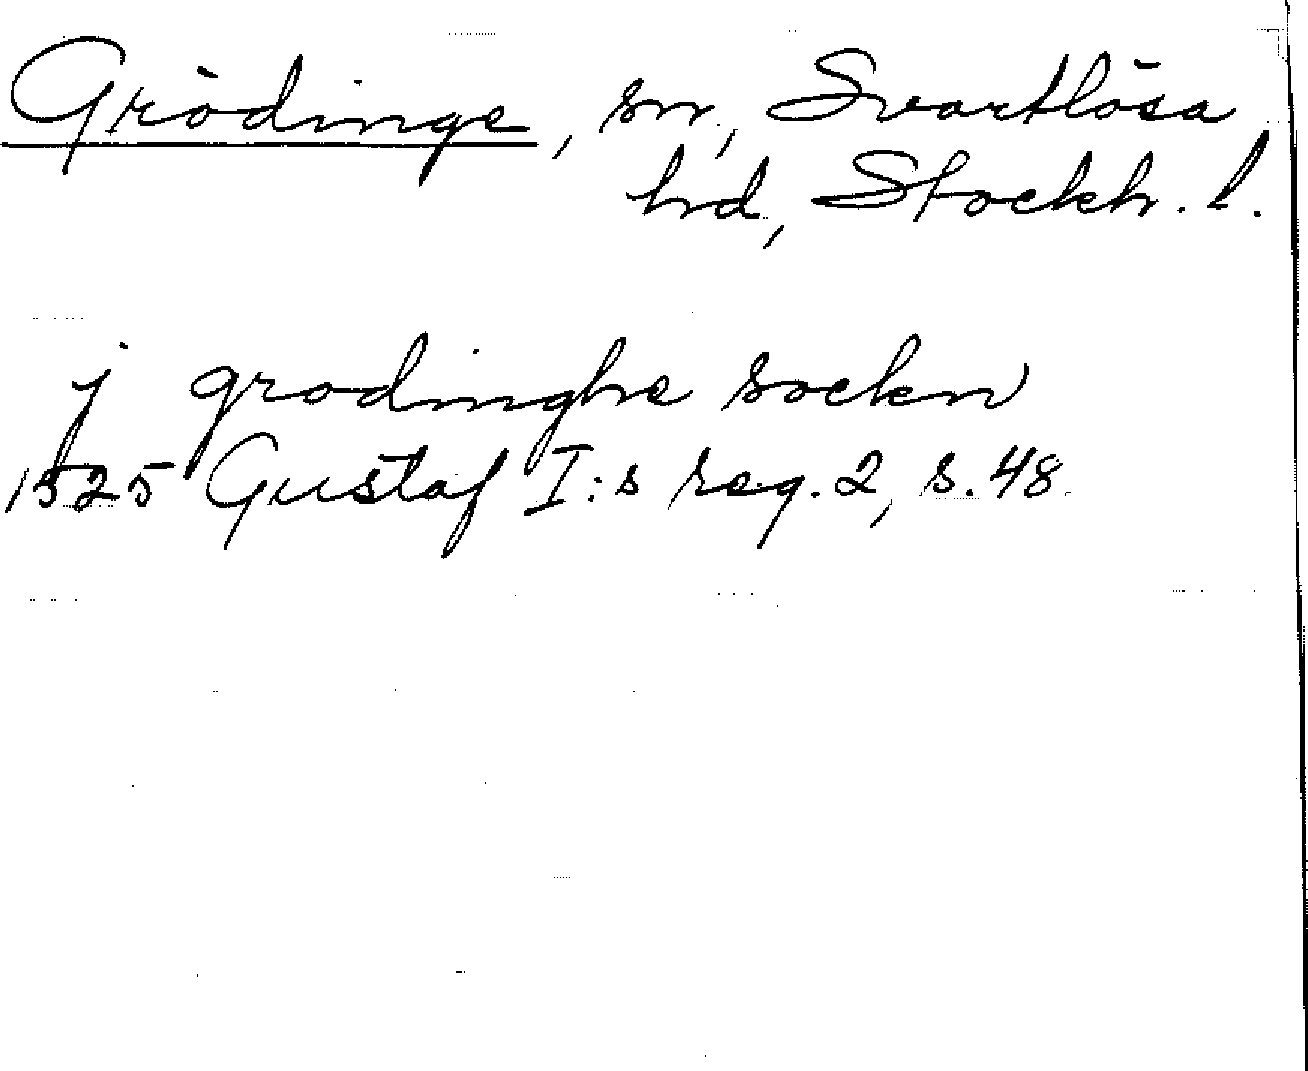 Grödinge, sn, Svartlösa
hd, Stockh. l.
j grodinghe sockn
1525 Gustaf I:s reg. 2, s. 48